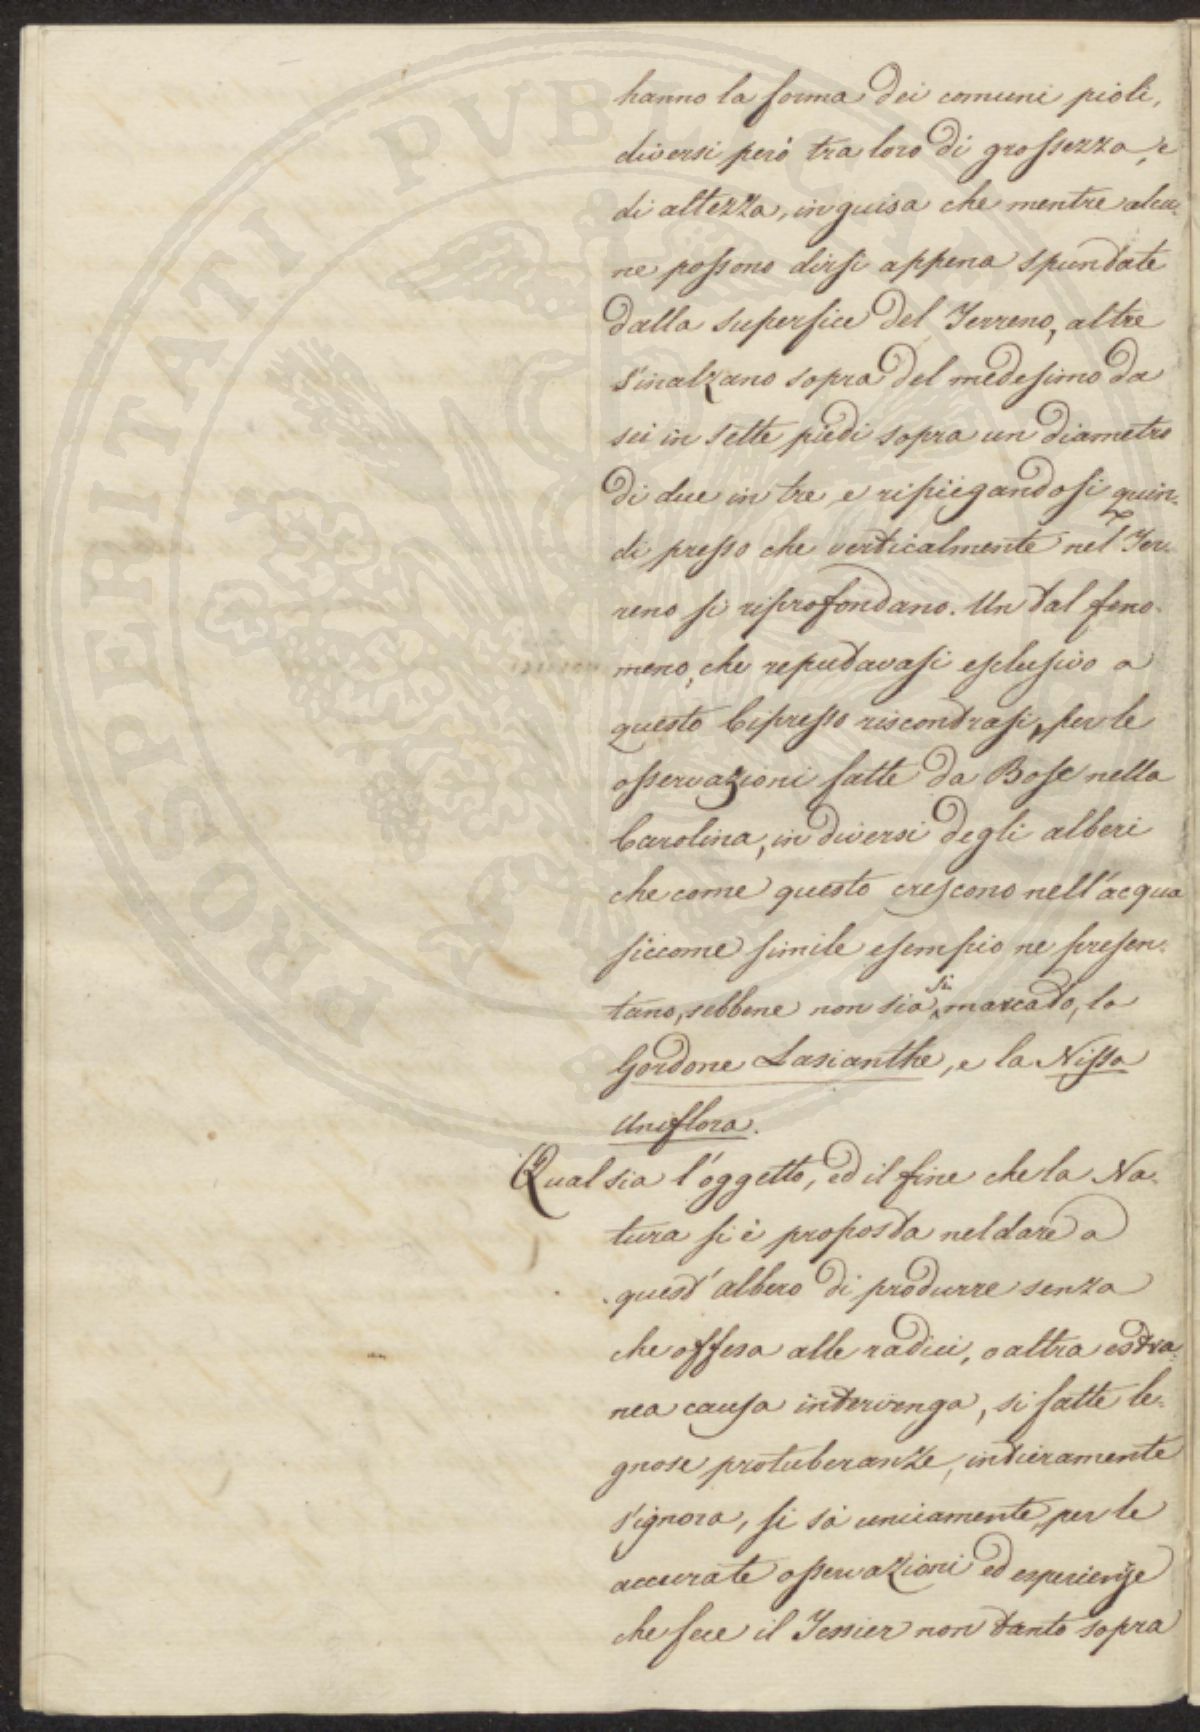 PROSPERITATI PVBLICAE
hanno la forma dei comuni pioli,
diversi però tra loro di grossezza, e
di altezza, in guisa che mentre alcu-
ne possono dirsi appena spuntate
dalla superfice del Terreno, altre
s'inalzano sopra del medesimo da
sei in sette piedi sopra un diametro
di due in tre e ripiegandosi quin-
di presso che verticalmente nel Ter-
reno si riprofondano. Un tal feno-
meno, che reputavasi esclusivo a
questo Cipresso riscontrasi, per le
osservazioni fatte da Bosc nella
Carolina, in diversi degli alberi
che come questo crescono nell'acqua
siccome simile esempio ne presen-
tano, sebbene non sia si marcato, la
Gordone Lasianthe, e la Nissa
Uniflora.
Qual sia l'oggetto, ed il fine che la Na-
tura si è proposta nel dare a
quest'albero di produrre senza
che offesa alle radici, o altra estra-
nea causa intervenga, si fatte le-
gnose protuberanze, intieramente
s'ignora, si sà unicamente, per le
accurate osservazioni ed esperienze
che fece il Tessier non tanto sopra